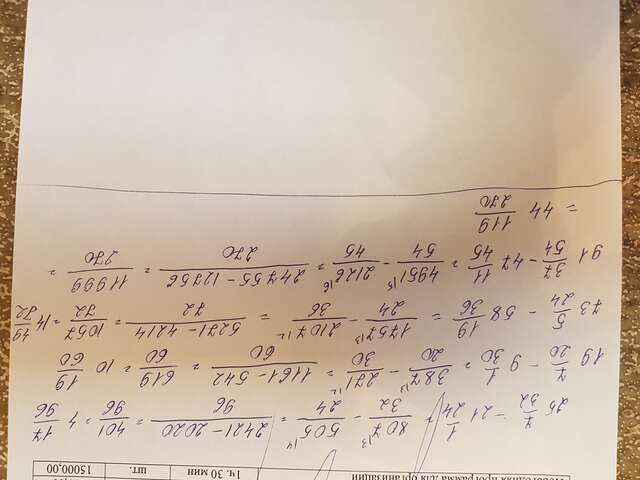 программа для организации 1ч. 30 мин шт. 15000,00
25 7/32 - 21 1/24 = 807/32 ¹³ - 505/24 ¹⁴ = 2421 - 2020/96 = 401/96 = 4 17/96
19 7/20 - 9 1/30 = 387/20 ¹³ - 271/30 ¹² = 1161 - 542/60 = 619/60 = 10 19/60
73 5/24 - 58 19/36 = 1757/24 ¹³ - 2107/36 ¹² = 5271 - 4214/72 = 1057/72 = 14 49/72
91 37/54 - 47 11/45 = 4951/54 ¹⁵ - 2126/45 ¹⁶ = 24755 - 12756/270 = 11999/270 =
= 44 119/270